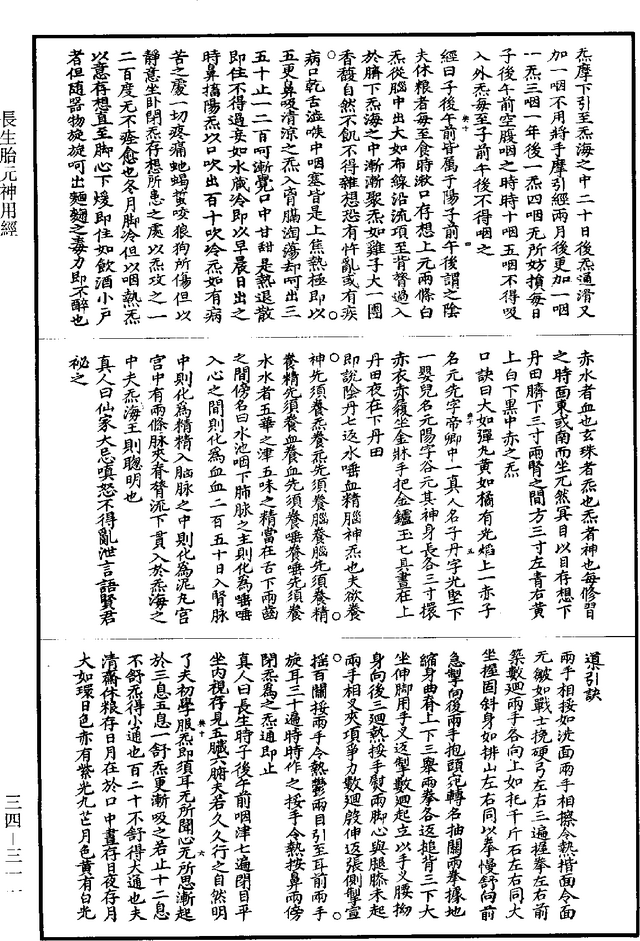 炁摩下引至炁海之中二十日後炁通滑又
加一咽不用將手摩引經兩月後更加一咽
一炁三咽一年後一炁四咽无所妨損每日
子後午前空腹咽之時時十咽五咽不得吸
入外炁每至子前午後不得咽之
經曰子後午前皆屬子陽子前午後謂之陰
夫休粮者每至食時漱口存想上元兩條白
炁從腦中出大如布線沿流項至背脊過入
於臍下炁海之中漸漸聚炁如雞子大一團
香馥自然不飢不得雜想恐有忤亂或有疾
病口乾舌澁喉中咽塞皆是上焦熱極即以
五更鼻吸清涼之炁入胷膈淘蕩却呵出三
五十止一二百呵漸覺口中甘甜是熱退散
即住不得過妄如水藏冷即以早晨日出之
時鼻搐陽炁以口吹出百十吹冷炁如有病
苦之處一切疼痛虵蝎蜇咬狼狗所傷但以
靜意坐卧閉炁存想所患之處以炁攻之一
二百度无不痊愈也冬月脚冷但以咽熱炁
以意存想直至脚心下煖即住如飲酒小戸
者但随器物旋旋呵出麵麵之毒力即不醉也
赤水者血也玄珠者炁也炁者神也每修習
之時面東或南而坐元然冥目以目存想下
丹田臍下三寸兩腎之間方三寸左青右黄
上白下黒中赤之炁
口訣曰大如彈丸黄如橘有光焰上一赤子
名元先字帝卿中一真人名子丹字光堅下
一嬰兒名元陽字谷元其神身長各三寸擐
赤衣赤履坐金牀手把金鑪玉七具晝在上
丹田夜在下丹田
即說陰丹七返水唾血精腦神炁也夫欲養
神先須養炁養炁先須養腦養腦先須養精
養精先須養血養血先須養唾養唾先須養
水水者五華之津五味之精當在舌下兩齒
之間傍名曰水池咽下肺脉之主則化為唾唾
入心之間則化為血血二百五十日入腎脉
中則化為精精入腦脉之中則化為泥丸宮
宮中有兩條脉夾脊膂流下貫入於炁海之
中夫炁海王則聰明也
真人曰仙家大忌嗔怒不得亂泄言語賢君
祕之
道引訣
兩手相按如洗面兩手相擦令熱揩面令面
元皺如戰士挽硬弓左右三遍握拳左右前
築數廻兩手各向上如托千斤石左右同大
坐握固斜身如排山左右同以拳慢舒向前
急掣向後兩手抱頭宛轉名抽關兩拳據地
縮身曲脊上下三舉兩拳各返搥背三下大
坐伸脚用手叉返掣數廻起立以手叉腰拗
身向後三廻熱挼手熨兩脚心與腿膝未起
兩手相叉夾項爭力數廻啟伸返張側掣宣
揺百關挼兩手令熱鬱兩目引至耳前兩手
旋耳三十遍時時作之挼手令熱按鼻兩傍
閉炁為之炁通即止
真人曰長生時子後午前咽津七遍閉目平
坐内視存見五臟六腑夫若久久行之自然明
了夫初學服炁即須耳无所聞心无所思漸起
於三息五息一舒炁更漸吸之若止十二息
不舒炁得小通也百二十不舒得大通也夫
清齋休粮存日月在於口中晝存日夜存月
大如環日色赤有紫光九芒月色黄有白光
長生胎元神用經
三四—三一一